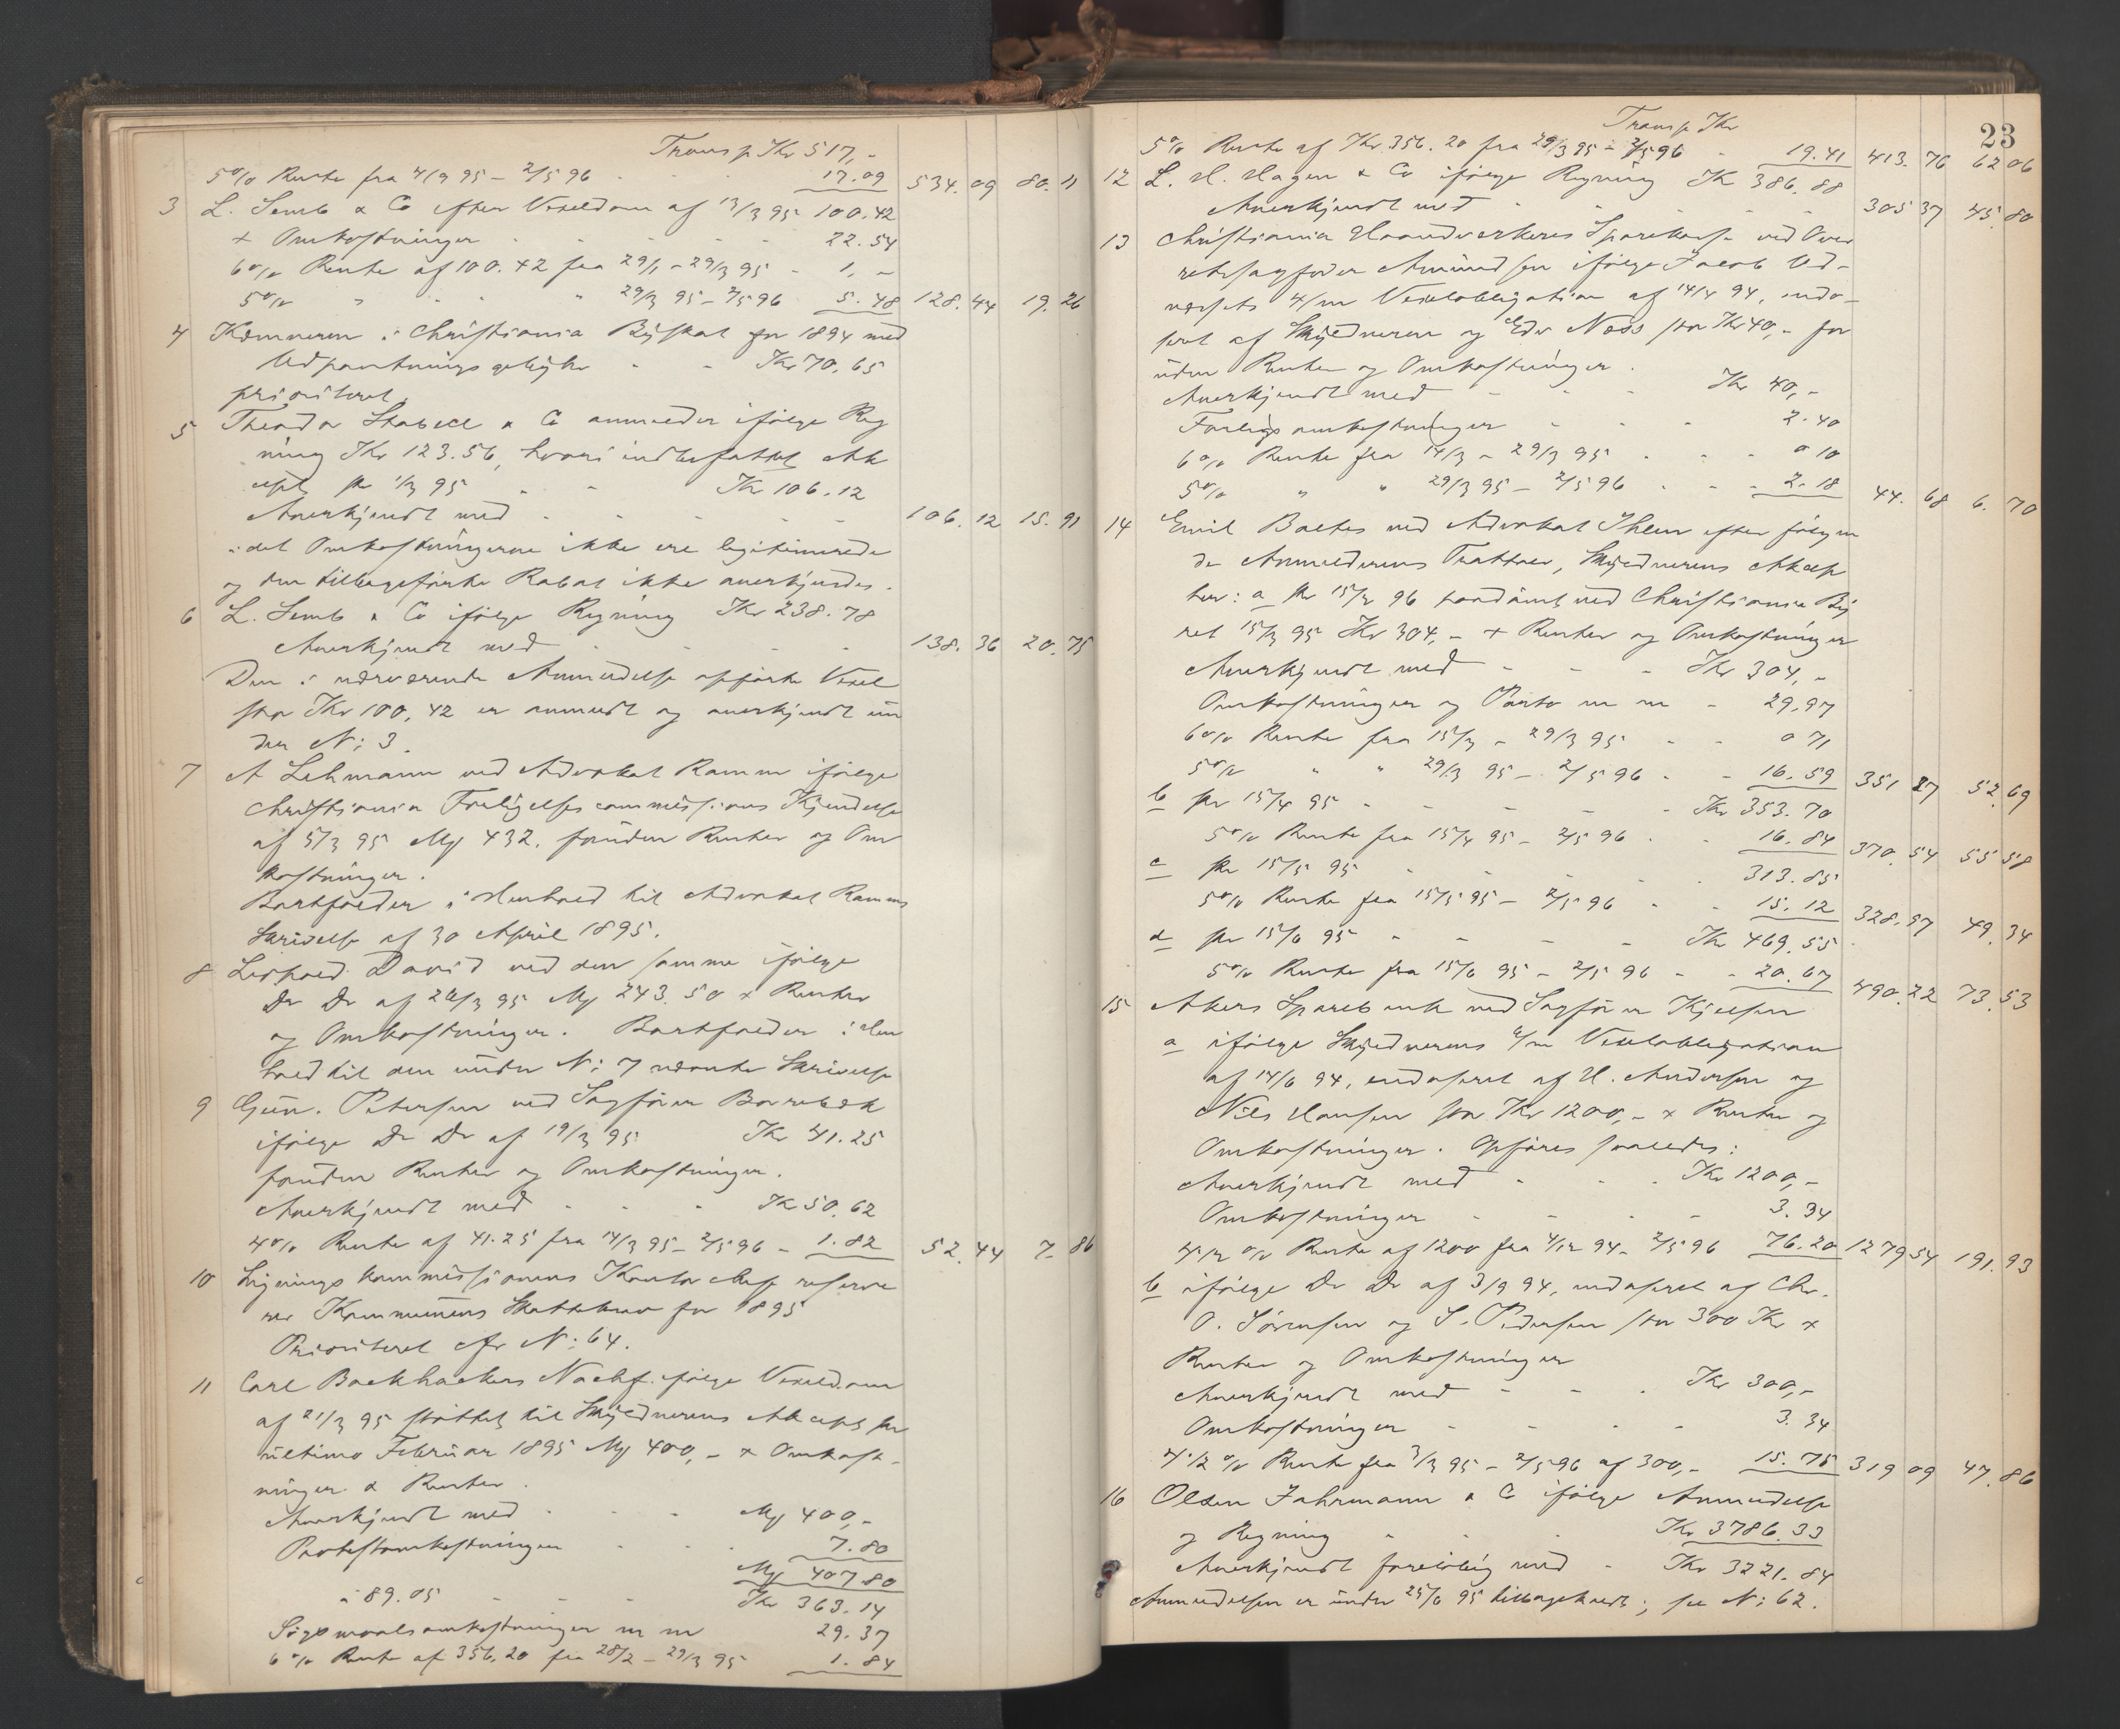 Transp Kr 517,-
5% Rente fra 4/9 95 - 2/5 96 17.09 534.09 80.11
3 L. Semb & Co efter Vexeldom af 13/3 95 100.42
+ Omkostninger 22.54
6% Rente af 100.42 fra 29/1 - 29/3 95 - 1,-
5% " " 29/3 95 - 2/5 96 5.48 128.44 19.26
4 Kæmneren i Christiania Byskat for 1894 med
Udpantningsgebyhr - - Kr 70.65
prioriteret.
5 Theodor Stabell & Co anmelder ifølge Reg
ning Kr 123.56, hvori indbefattet Ak
cept pr 1/3 95 - - Kr 106.12
Anerkjendt med - - - - 106.12 15.91
idet Omkostningerne ikke ere legitimerede
og den tilbageførte Rabat ikke anerkjendes.
6 L. Semb & Co ifølge Regning Kr 238.78
Anerkjendt med - - - 138.36 20.75
Den i nærværende Anmeldelse opførte Vexel
stor Kr 100,42 er anmeldt og anerkjendt un
der N: 3.
7 A Lehmann ved Advokat Ramm ifølge
Christiania Forligelsescommissions Kjendelse
af 5/3 95 Mk 432. foruden Renter og Om
kostninger.
Bortfalder i Henhold til Advokat Ramms
Skrivelse af 30 April 1895.
8 Leopold David ved den samme ifølge
Do Do af 26/3 95 Mk 243.50 + Renter
og Omkostninger. Bortfalder i Hen
hold til den under N: 7 nævnte Skrivelse
9 Gun. Petersen ved Sagfører Borrebæk
ifølge Do Do af 19/3 95 Kr 41.25
foruden Renter og Omkostninger.
Anerkjendt med - - - Kr 50.62
4% Rente af 41.25 fra 14/3 95 - 2/5 96 - 1.82 52.44 7.86
10 Ligningskommissionens Kontorchef reserve
rer Kommunens Skattekrav for 1895
Prioriteret cfr N: 64.
11 Carl Backhackers Nachf. ifølge Vexeldom
af 21/3 95 støttet til Skyldnerens Akcept pr
ultimo Februar 1895 Mk 400,- + Omkost-
ninger & Renter.
Anerkjendt med - - - Mk 400,-
Protestomkostninger - - 7.80
Mk 407.80
à 89.05 - - - Kr 363.14
Søgsmaalsomkostninger m m 29.37
6% Rente af 356.20 fra 28/2 - 29/3 95 1.84
23
Transp Kr
5% Rente af Kr. 356.20 fra 29/3 95 - 2/5 96 - 19.41 413.76 62 06
12 L. H. Hagen & Co ifølge Regning Kr 386.88
Anerkjendt med - - - - 305 37 45.80
13 Christiania Haandverkeres Sparekasse ved Over
retssagfører Amundsen ifølge Jacob Ud-
næsets 4/m Vexelobligation af 14/4 94, endo-
seret af Skyldneren og Edv Næss stor Kr 40,- for
uden Renter og Omkostninger.
Anerkjendt med - - - Kr 40,-
Forligsomkostninger - - - 2.40
6% Rente fra 14/3 - 29/3 95 - - - 0 10
5% " " 29/3 95 - 2/5 96 - - - 2.18 44.68 6.70
14 Emil Baltes ved Advokat Ihlen efter følgen
de Anmelderens Tratter, Skyldnerens Akcep
ter: a pr 15/2 96 paadømt ved Christiania By
ret 15/3 95 Kr 304,- + Renter og Omkostninger
Anerkjendt med - - - Kr 304,-
Omkostninger og Porto m m - 29.97
6% Rente fra 15/3 - 29/3 95 - - 0 71
5% " " 29/3 95 - 2/5 96 - - 16.59 351 27 52.69
b pr 15/4 95 - - - - - Kr 353.70
5% Rente fra 15/4 95 - 2/5 96 - - 16.84 370.54 55 58
c pr 15/5 95 - - - - - 313.85
5% Rente fra 15/5 95 - 2/5 96 - - 15.12 328.97 49.34
d pr 15/6 95 - - - - Kr 469.55
5% Rente fra 15/6 95 - 2/5 96 - - 20.67 490.22 73.53
15 Akers Sparebank ved Sagfører Kjelsen
a ifølge Skyldnerens 6/m Vexelobligation
af 14/6 94, endosseret af H. Andersen og
Nils Hansen stor Kr 1200,- + Renter og
Omkostninger. Opføres saaledes:
Anerkjendt med - - - Kr 1200,-
Omkostninger - - - - 3.34
4 1/2 % Rente af 1200 fra 4/12 94 - 2/5 96 76.20 1279 54 191.93
b ifølge Do Do af 3/9 94, endosseret af Chr.
O. Sørensen og S. Pedersen stor 300 Kr +
Renter og Omkostninger
Anerkjendt med - - - Kr 300,-
Omkostninger - - - - 3.34
4 1/2 % Rente fra 3/3 95 - 2/5 96 af 300,- 15.75 319 09 47.86
16 Olsen Fahrmann & Co ifølge Anmeldelse
og Regning - - - Kr 3786.33
Anerkjendt foreløbig med - Kr 3221.84
Anmeldelsen er under 25/6 95 tilbagekaldt; se N: 62.